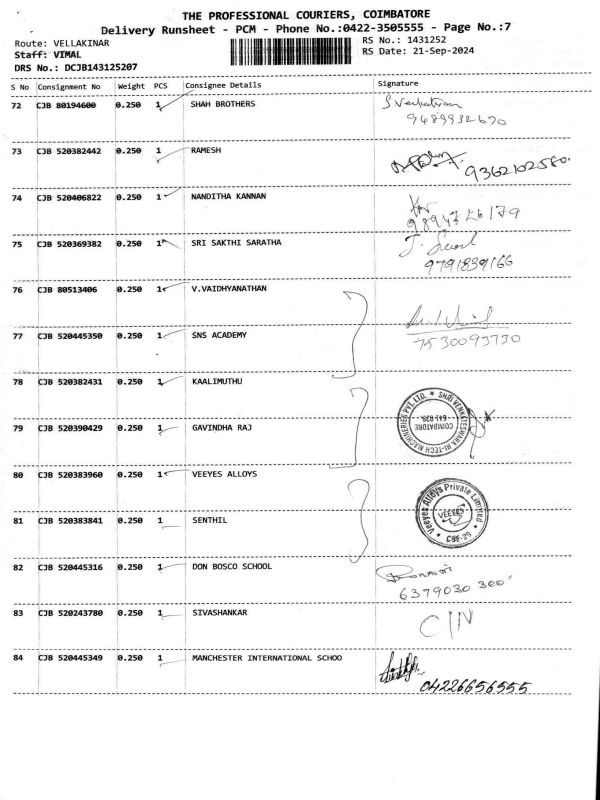 THE PROFESSIONAL COURIERS, COIMBATORE
Delivery Runsheet - PCM - Phone No.:0422-3505555 - Page No.:7
Route: VELLAKINAR RS No.: 1431252
Staff: VIMAL RS Date: 21-Sep-2024
DRS No.: DCJB143125207
S No Consignment No Weight PCS Consignee Details Signature
72 CJB 80194600 0.250 1 SHAH BROTHERS
9489932670
73 CJB 520382442 0.250 1 RAMESH
9362102580.
74 CJB 520406822 0.250 1 NANDITHA KANNAN
75 CJB 520369382 0.250 1 SRI SAKTHI SARATHA
9791839166
76 CJB 80513406 0.250 1 V.VAIDHYANATHAN
77 CJB 520445350 0.250 1 SNS ACADEMY
7530093730
78 CJB 520382431 0.250 1 KAALIMUTHU
79 CJB 520390429 0.250 1 GAVINDHA RAJ
SHRI VENKATESWARA HI-TECH MACHINERIES PVT. LTD. ★
COIMBATORE
641 029.
80 CJB 520383960 0.250 1 VEEYES ALLOYS
Veeyes Alloys Private Limited
VEEYES
* CBE-29 *
81 CJB 520383841 0.250 1 SENTHIL
82 CJB 520445316 0.250 1 DON BOSCO SCHOOL
6379030300
83 CJB 520243780 0.250 1 SIVASHANKAR
C/N
84 CJB 520445349 0.250 1 MANCHESTER INTERNATIONAL SCHOO
04226656555